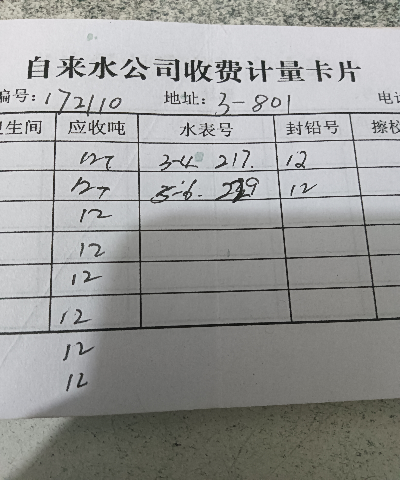 自来水公司收费计量卡片
编号: 172110 地址: 3-801 电话
卫生间 应收吨 水表号 封铅号 擦校
12T 3-4 217. 12
12T 5-6. 229 12
12
12
12
12
12
12